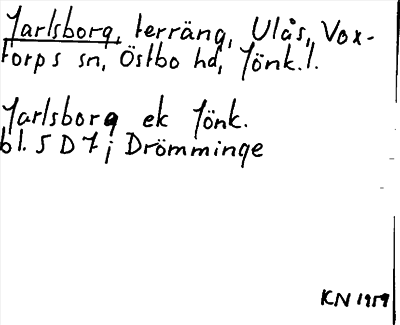 Jarlsborg, terräng, Ulås, Vox-
torps sn, Östbo hd, Jönk.l.
Jarlsborg ek Jönk.
bl. 5 D 7 j Drömminge
KN 1959